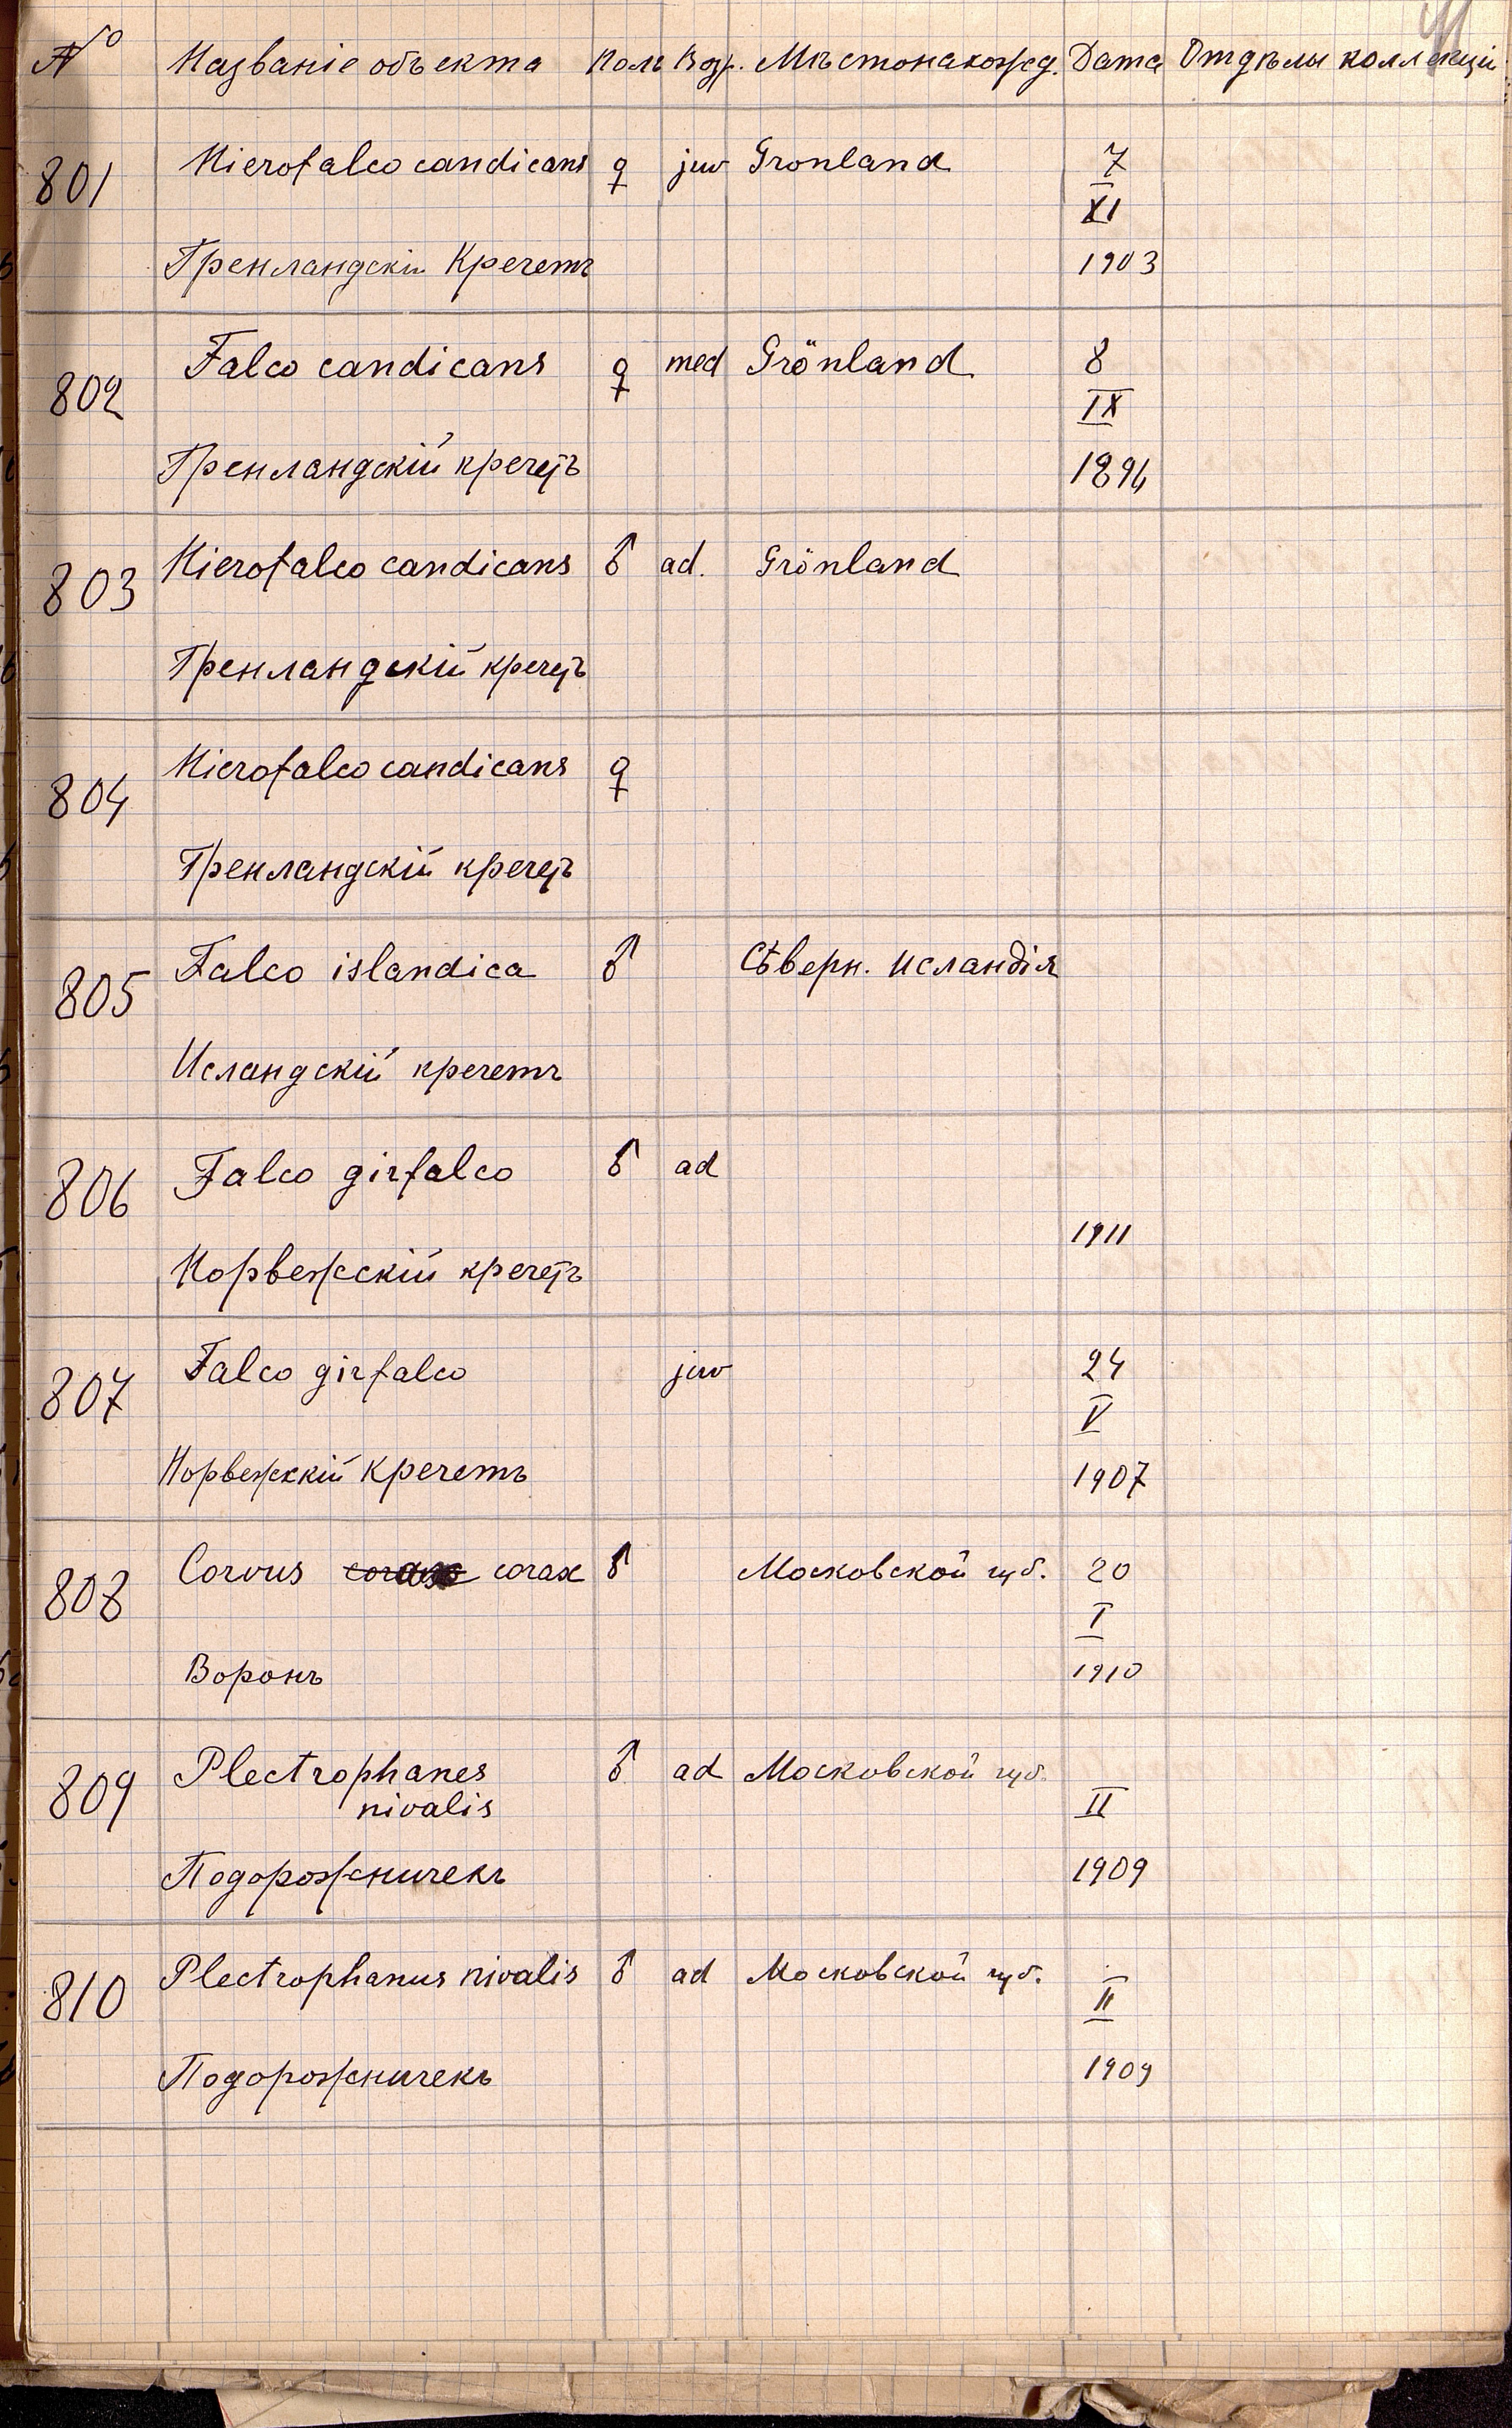 41
№ Названіе объекта Полъ Возр. Мѣстонахожд. Дата Отдѣлы коллекціи
801 Hierofalco candicans ♀ juv Gronland 7
XI
Гренландскій Кречетъ 1903
802 Falco candicans ♀ med Grönland 8
IX
Гренландскій кречетъ 1894
803 Hierofalco candicans ♂ ad. Grönland
Гренландскій кречетъ
804 Hierofalco candicans ♀
Гренландскій кречетъ
805 Falco islandica ♂ Сѣверн. Исландія
Исландскій кречетъ
806 Falco girfalco ♂ ad
1911
Норвежскій кречетъ
807 Falco girfalco juv 24
V
Норвежскій Кречетъ 1907
808 Corvus corax ♂ Московской губ. 20
I
Воронъ 1910
809 Plectrophanes ♂ ad Московской губ.
nivalis II
Подорожничекъ 1909
810 Plectrophanus nivalis ♂ ad Московской губ.
II
Подорожничекъ 1909